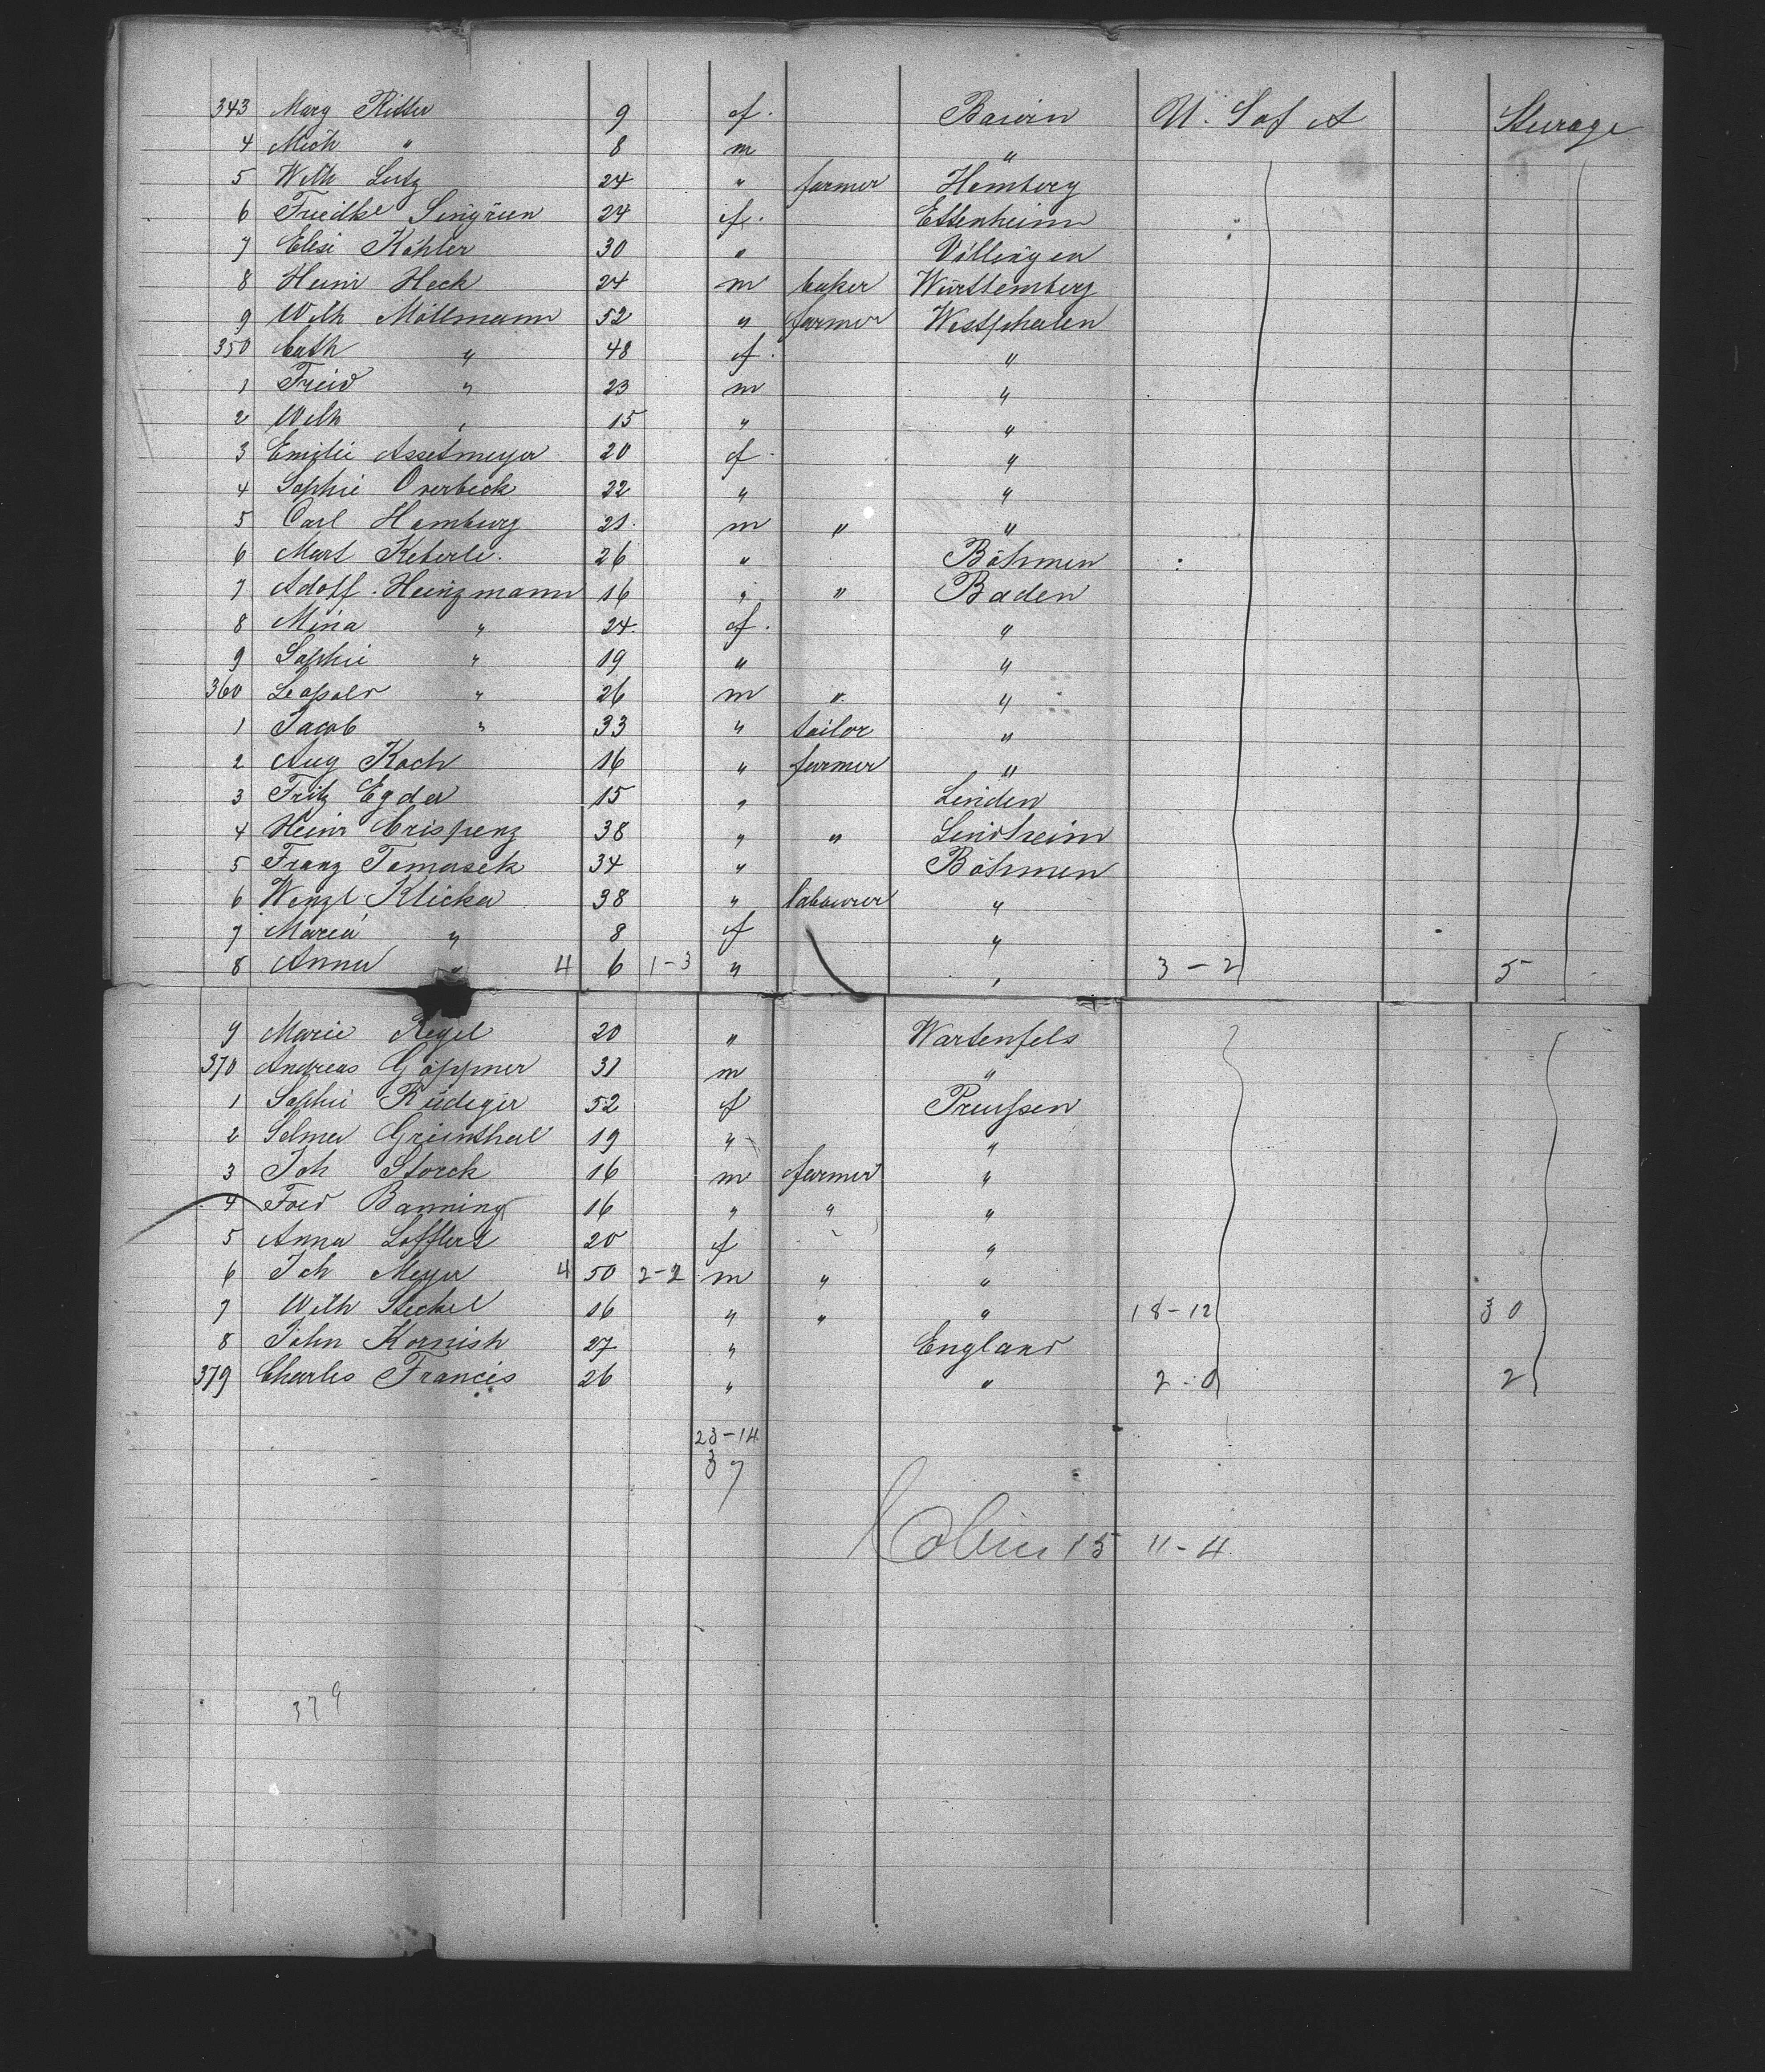 343 Marg Ritter 9 f. Baiern U. S of A Steerage
4 Mich " 8 m "
5 Wilh Lutz 24 " farmer Homberg
6 Friedke Singrün 24 f. Ettenheim
7 Elisi Köhler 30 " Völlingen
8 Heinr Heck 24 m baker Württemberg
9 Wilh Möllmann 52 " farmer Westfhalen
350 Cath " 48 f. "
1 Fried " 23 m "
2 Wilh " 15 " "
3 Emilie Assetmeyer 20 f. "
4 Sophie Overbeck 22 " "
5 Carl Homburg 21. m " "
6 Mart Keberle. 26 " Böhmen
7 Adolf. Heinzmann 16 " " Baden
8 Mina " 24. f. "
9 Sophie " 19 " "
360 Leopold " 26 m " "
1 Jacob " 33 " tailor "
2 Aug Koch 16 " farmer "
3 Fritz Egder 15 " Linden
4 Heinr Crispenz 38 " " Lindheim
5 Franz Tomasek 34 " Böhmen
6 Wenzl Klicka 38 " labourer "
7 Maria " 8 f "
8 Anna " 4 6 1-3 " " 3-2 5
9 Marie Regel 20 " Wartenfels
370 Andreas Göppner 31 m "
1 Sophie Rüdeger 52 f Preussen
2 Selma Grünthal 19 " "
3 Joh Storck 16 m farmer "
4 Fred Banning 16 " " "
5 Anna Lofflert 20 f "
6 Joh Meyer 4 50 2-2 m " "
7 Wilh Steckel 16 " " " 18-12 30
8 John Kornish 27 " England
379 Charles Francis 26 " " 2-0 2
23-14
37
Cabin 15 11-4
379